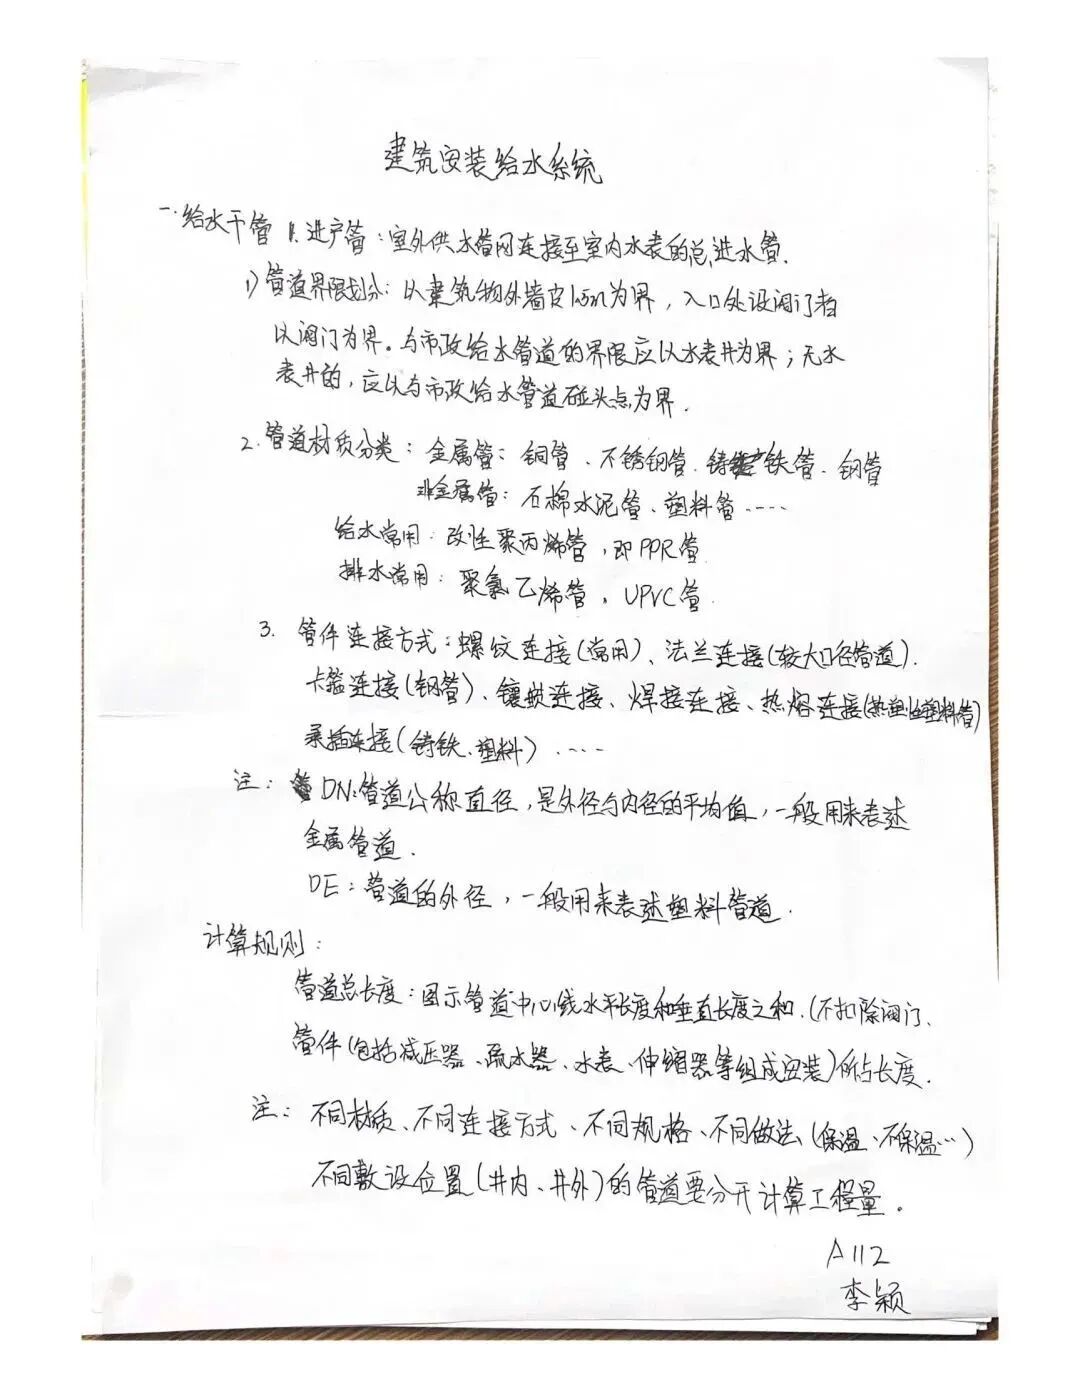 建筑安装给水系统
一.给水干管 1.进户管：室外供水管网连接至室内水表的总进水管.
1)管道界限划分：以建筑物外墙皮1.5m为界，入口处设阀门者
以阀门为界。与市政给水管道的界限应以水表井为界；无水
表井的，应以与市政给水管道碰头点为界.
2.管道材质分类：金属管：铜管、不锈钢管.铸铁管.钢管
非金属管：石棉水泥管、塑料管……
给水常用：改性聚丙烯管，即PPR管.
排水常用：聚氯乙烯管，UPVC管.
3. 管件连接方式：螺纹连接(常用)、法兰连接(较大口径管道).
卡箍连接(钢管)、镶嵌连接、焊接连接、热熔连接(热塑性塑料管)
承插连接(铸铁.塑料) ……
注：DN:管道公称直径，是外径与内径的平均值，一般用来表述
金属管道.
DE：管道的外径，一般用来表述塑料管道.
计算规则：
管道总长度：图示管道中心线水平长度和垂直长度之和.(不扣除阀门、
管件(包括减压器、疏水器、水表、伸缩器等组成安装)所占长度.
注：不同材质、不同连接方式、不同规格、不同做法(保温、不保温…)
不同敷设位置(井内、井外)的管道要分开计算工程量。
A112
李颖